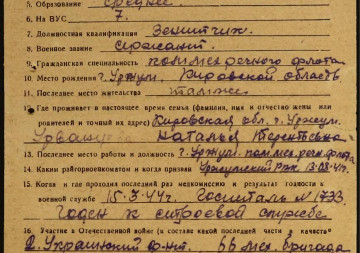 5. Образование среднее
6. На ВУС 7.
7. Должностная квалификация Зенитчик
8. Военное звание сержант.
9. Гражданская специальность пом. мех. речного флота
10. Место рождения г. Уржум. Кировской область
11. Последнее место жительства там же
12. Где проживает в настоящее время семья (фамилия, имя и отчество жены или
родителей и точный их адрес) Кировская обл. г. Уржум.
Наталья Терентьевна
13. Последнее место работы и должность г. Уржум. пом. мех. речн. флота
14. Каким райгорвоенкоматом и когда призван Уржумский РВК
15. Когда и где проходил последний раз медкомиссию и результат годности к
военной службе 15.3.44г. Госпиталь № 1733.
Годен к строевой службе
16. Участие в Отечественной войне (в составе какой последней части и в качестве
2. Украинский фронт. 66 мех. бригада